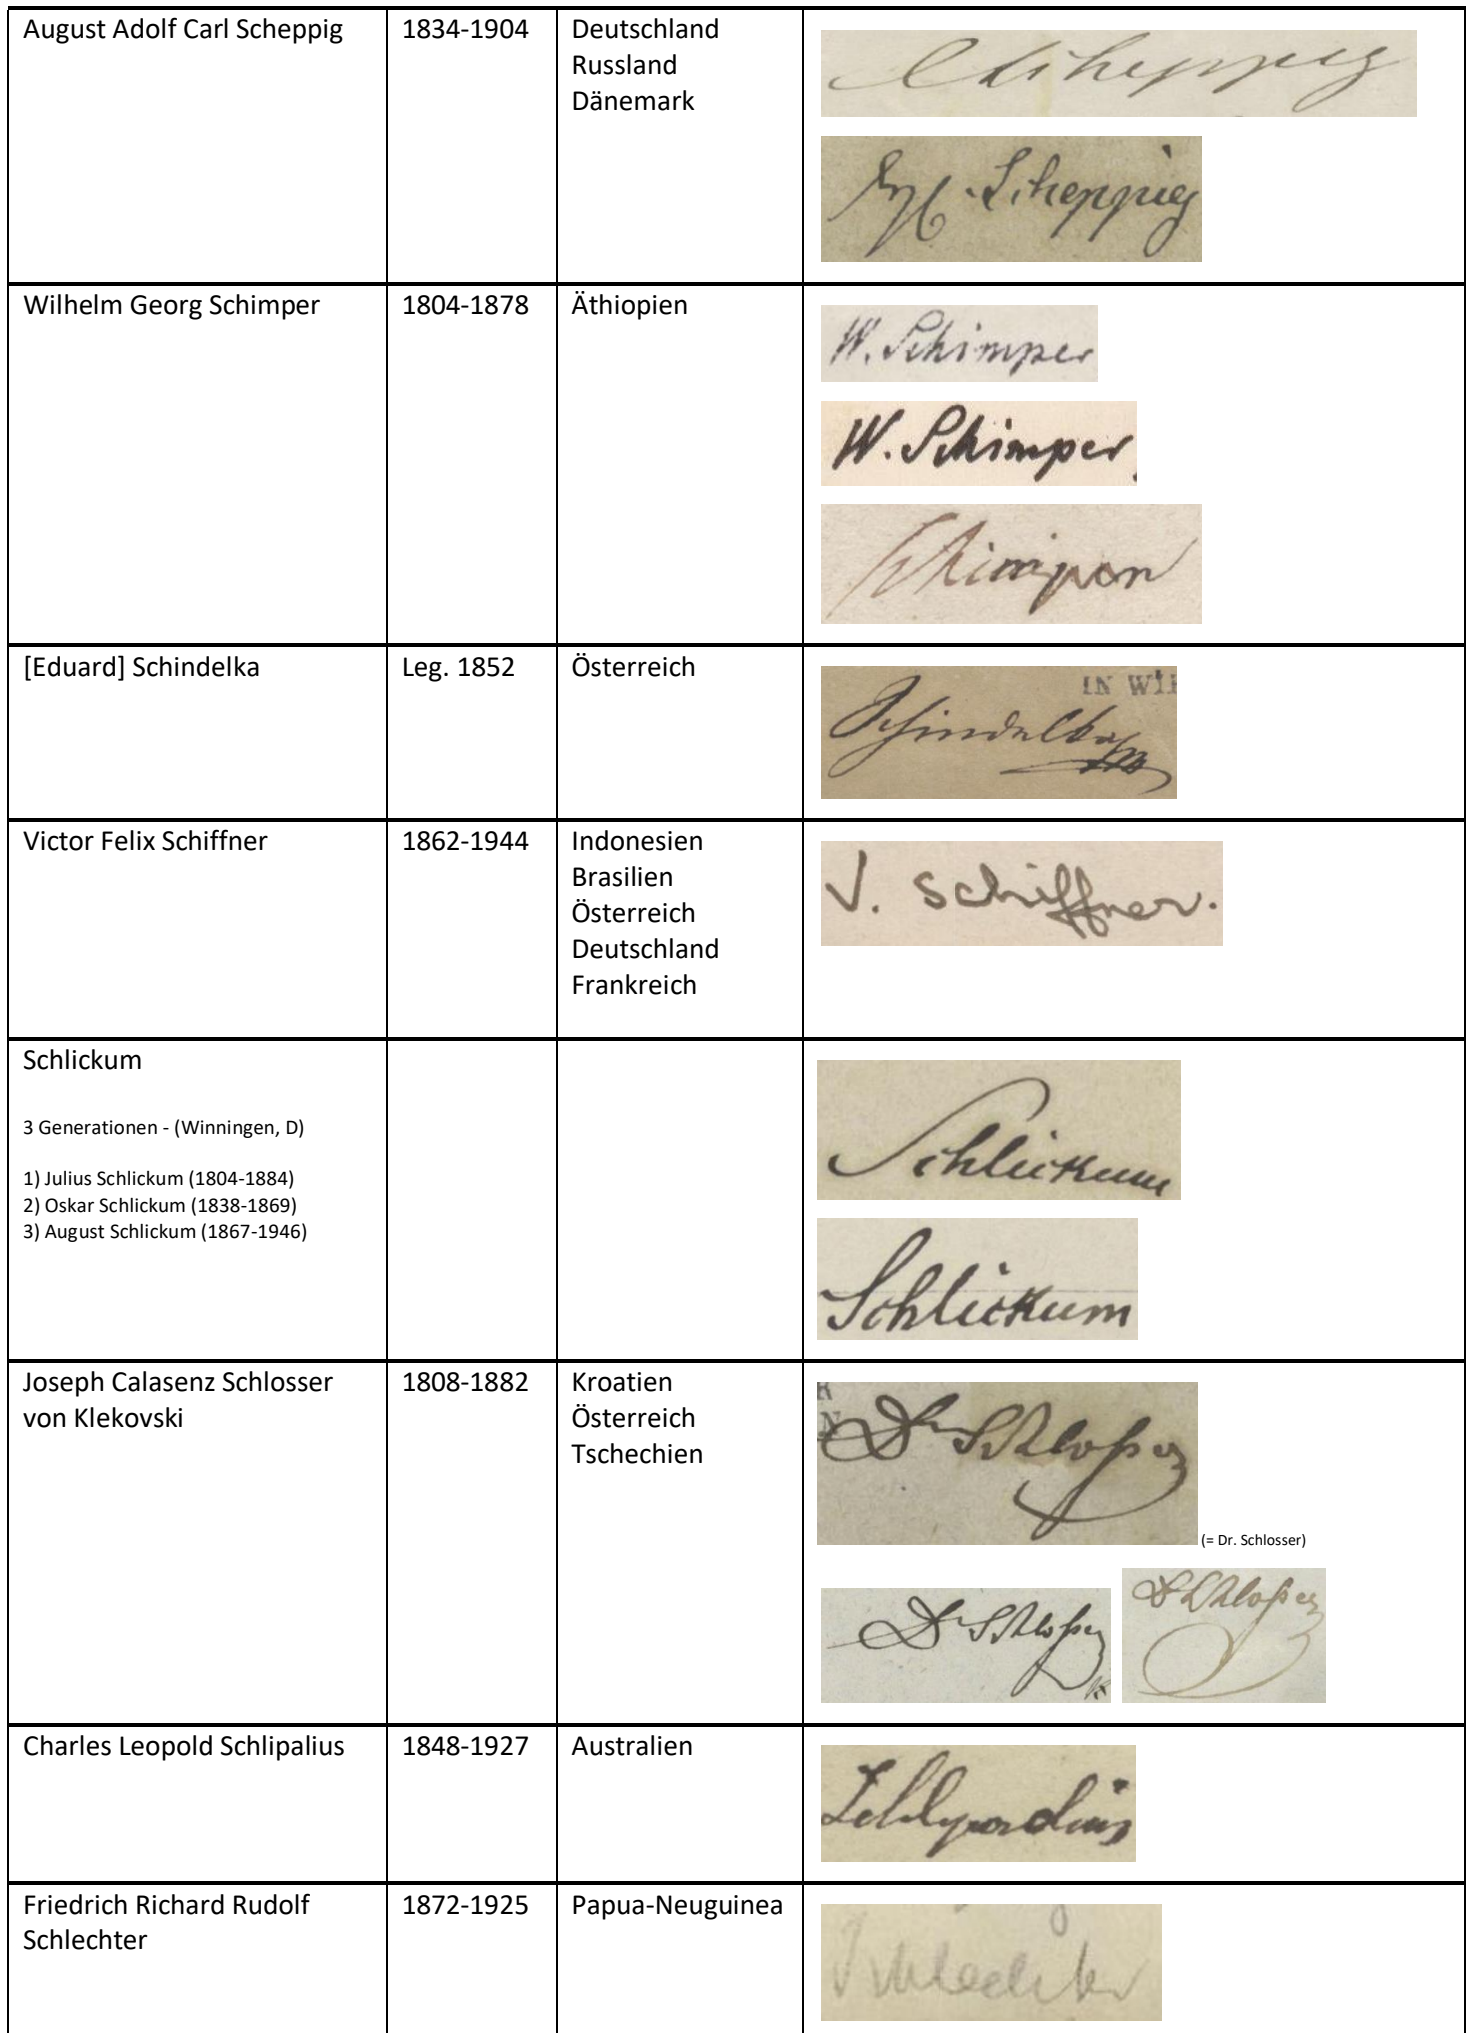 August Adolf Carl Scheppig
1834-1904
Deutschland
Russland
Dänemark
Scheppig
Scheppig
Wilhelm Georg Schimper
1804-1878
Äthiopien
W. Schimper
W. Schimper
Schimper
[Eduard] Schindelka
Leg. 1852
Österreich
IN WI
Schindelka
Victor Felix Schiffner
1862-1944
Indonesien
Brasilien
Österreich
Deutschland
Frankreich
V. Schiffner.
Schlickum
3 Generationen - (Winningen, D)
1) Julius Schlickum (1804-1884)
2) Oskar Schlickum (1838-1869)
3) August Schlickum (1867-1946)
Schlickum
Schlickum
Joseph Calasenz Schlosser
von Klekovski
1808-1882
Kroatien
Österreich
Tschechien
Dr Schloßer
(= Dr. Schlosser)
Dr Schloßer
Dr Schloßer
Charles Leopold Schlipalius
1848-1927
Australien
Schlipalius
Friedrich Richard Rudolf
Schlechter
1872-1925
Papua-Neuguinea
Schlechter